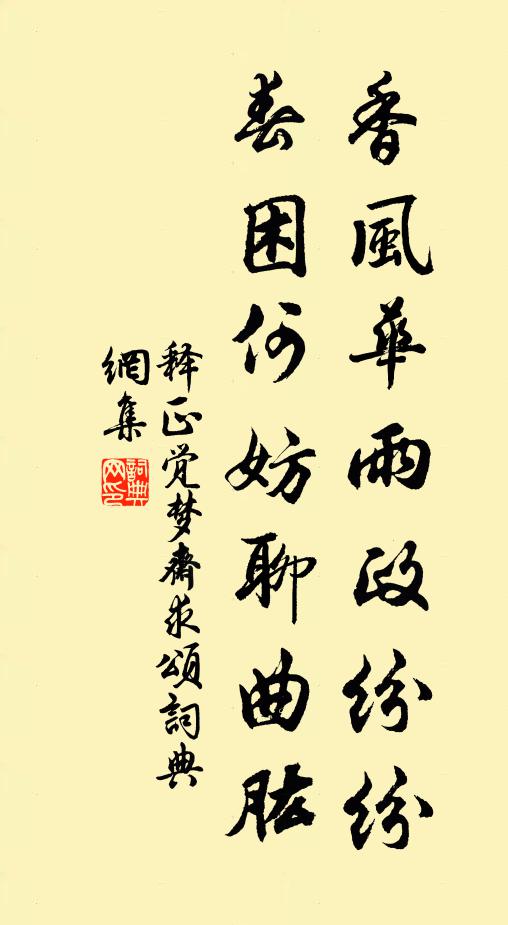 香風華雨政紛紛
春困何妨聊曲肱
释正觉梦齋求頌詞典
網集
詞典網印